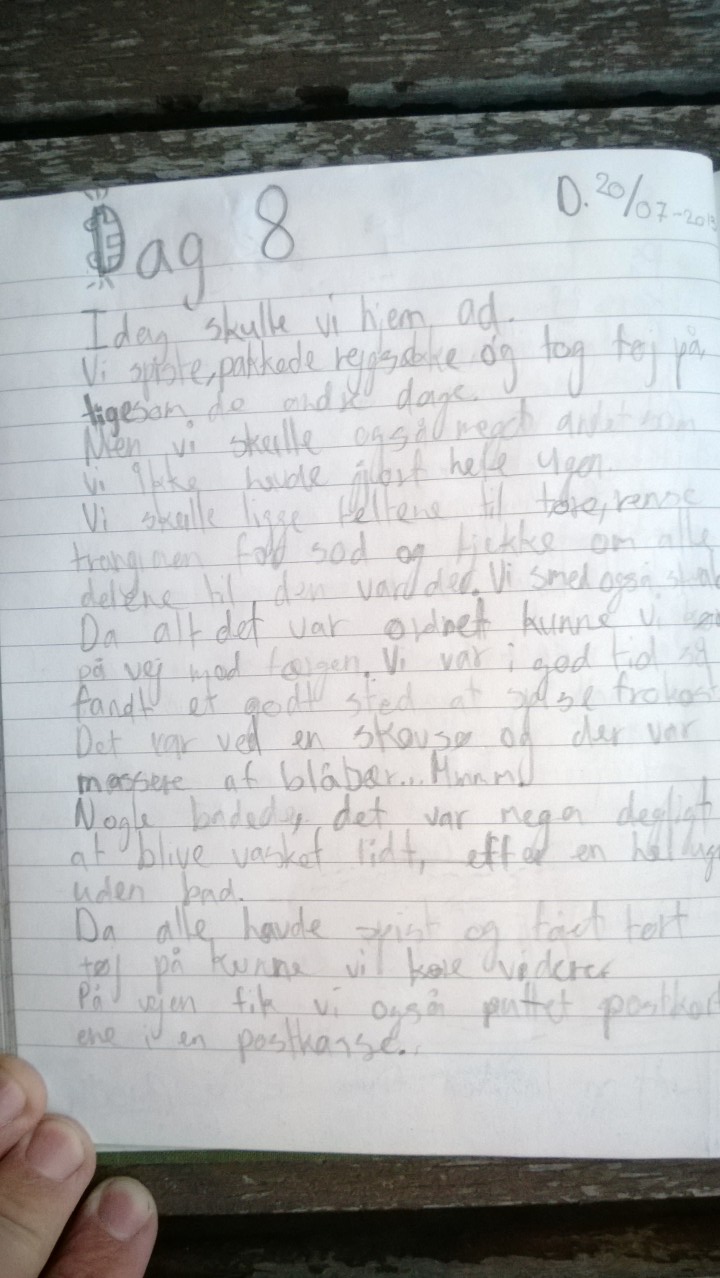 Dag 8
D. 20/07-2013
I dag skulle vi hjem ad.
Vi spiste, pakkede rejgsække og tog tøj på,
ligesom de andre dage.
Men vi skulle også meget andet som
vi ikke havde gjort hele ugen.
Vi skulle ligge teltene til tøre, rense
trangiaen for sod og tjekke om alle
delene til den var der. Vi smed også
Da alt det var ordnet kunne vi
på vej mod færgen. Vi var i god tid så
fandt et godt sted at spise frokost
Det var ved en skovsø og der var
massere af blåbær... Mmmm!
Nogle badede, det var mega dejligt
at blive vasket lidt, efter en hel uge
uden bad.
Da alle havde spist og fået tørt
tøj på kunne vi køre videre
På vejen fik vi også puttet postkort
ene i en postkasse.